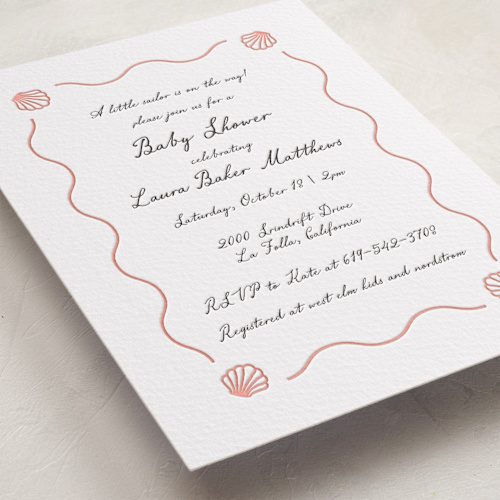 A little sailor is on the way!
please join us for a
Baby Shower
celebrating
Laura Baker Matthews
Saturday, October 18 \ 2pm
2000 Srindrift Drive
La Folla, California
RSVP to Kate at 619-542-3708
Registered at west elm kids and nordstrom